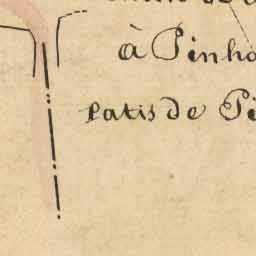 à Pinho
Patis de Pi